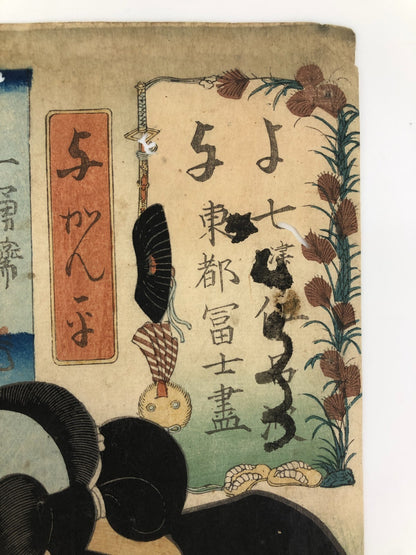 よ 七津
与 東都冨士盡
与かん平
一勇齋